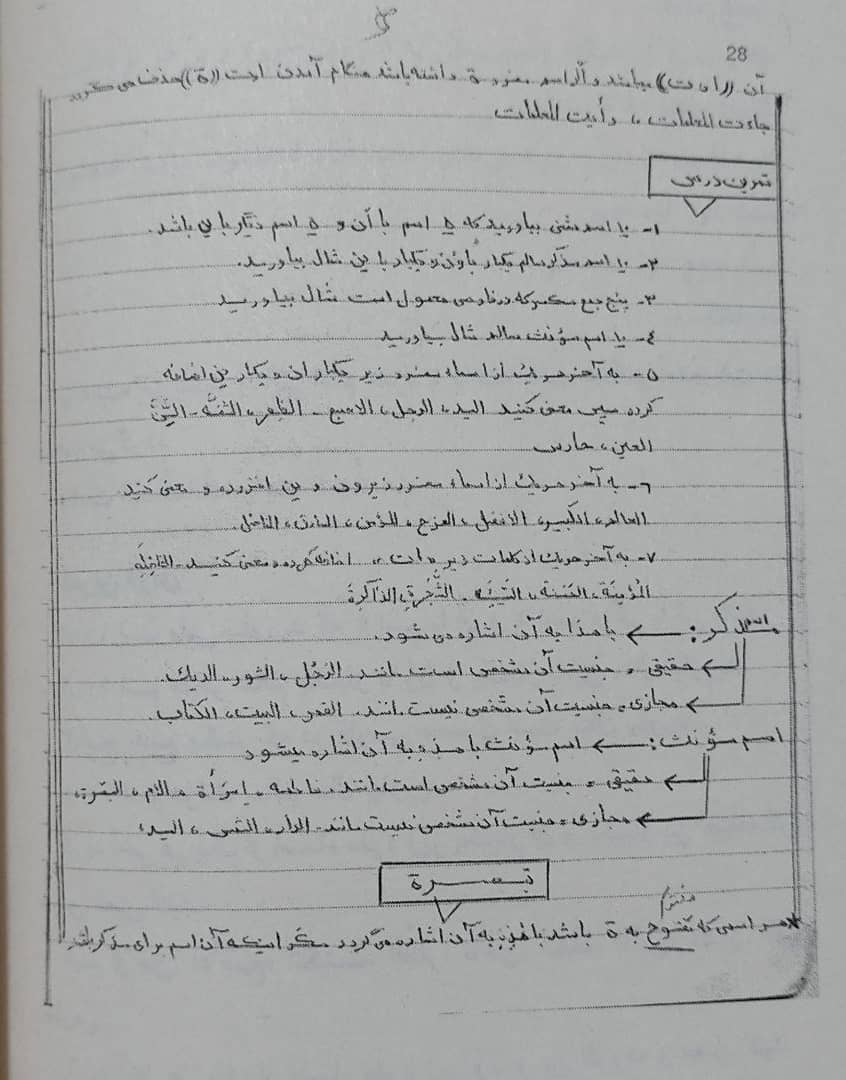 28
آن ((ا و ت)) میباشد و اگر اسم مفرد ة داشته باشد هنگام آمدن ات ((ة)) حذف می گردد
جاءت المعلمات ،، رأیت المعلمات
تمرین درس
۱- ۱۰ اسم مثنی بیاورید که ۵ اسم با آن و ۵ اسم دیگر با ین باشد.
۲- ۱۰ اسم مذکر سالم یکبار باون و یکبار با ین مثال بیاورید.
۳- پنج جمع مکسر که در فارسی معمول است مثال بیاورید
٤- ۱۰ اسم مؤنث سالم مثال بیاورید
۵- به آخر هر یک از اسماء مفرد زیر یکبار ان و یکبار ین اضافه
کرده سپس معنی کنید الید، الرجل، الاصبع - الظفر، الشفة -
العین، حارس
۶- به آخر هر یک از اسماء مفرد زیر ون و ین افزوده و معنی کنید
العالم، الکبیر، الافضل، ، المؤمن، ، الفاضل.
۷- به آخر هر یک از کلمات زیر ات ،، اضافه کرده و معنی کنید - الفاضِلَة
المُؤمِنَة، ، - الشَّجَرَة، الذّاکِرَة
اسم مذکر: با هذا به آن اشاره می شود.
حقیقی = جنسیت آن مشخص است مانند الرَجُل، الثور، الدیک.
مجازی = جنسیت آن مشخص نیست مانند القمر، البیت، الکتاب.
اسم مؤنث: اسم مؤنث با هذه به آن اشاره میشود
حقیقی = جنسیت آن مشخص است مانند، فاطمه، إمرَأة، الام، البقرة،
مجازی = جنسیت آن مشخص نیست مانند- الدار، الشمس، الید،
تبصرة
هر اسمی که به ة باشد با هذِهِ به آن اشاره می گردد مگر اینکه آن اسم برای مذکر باشد